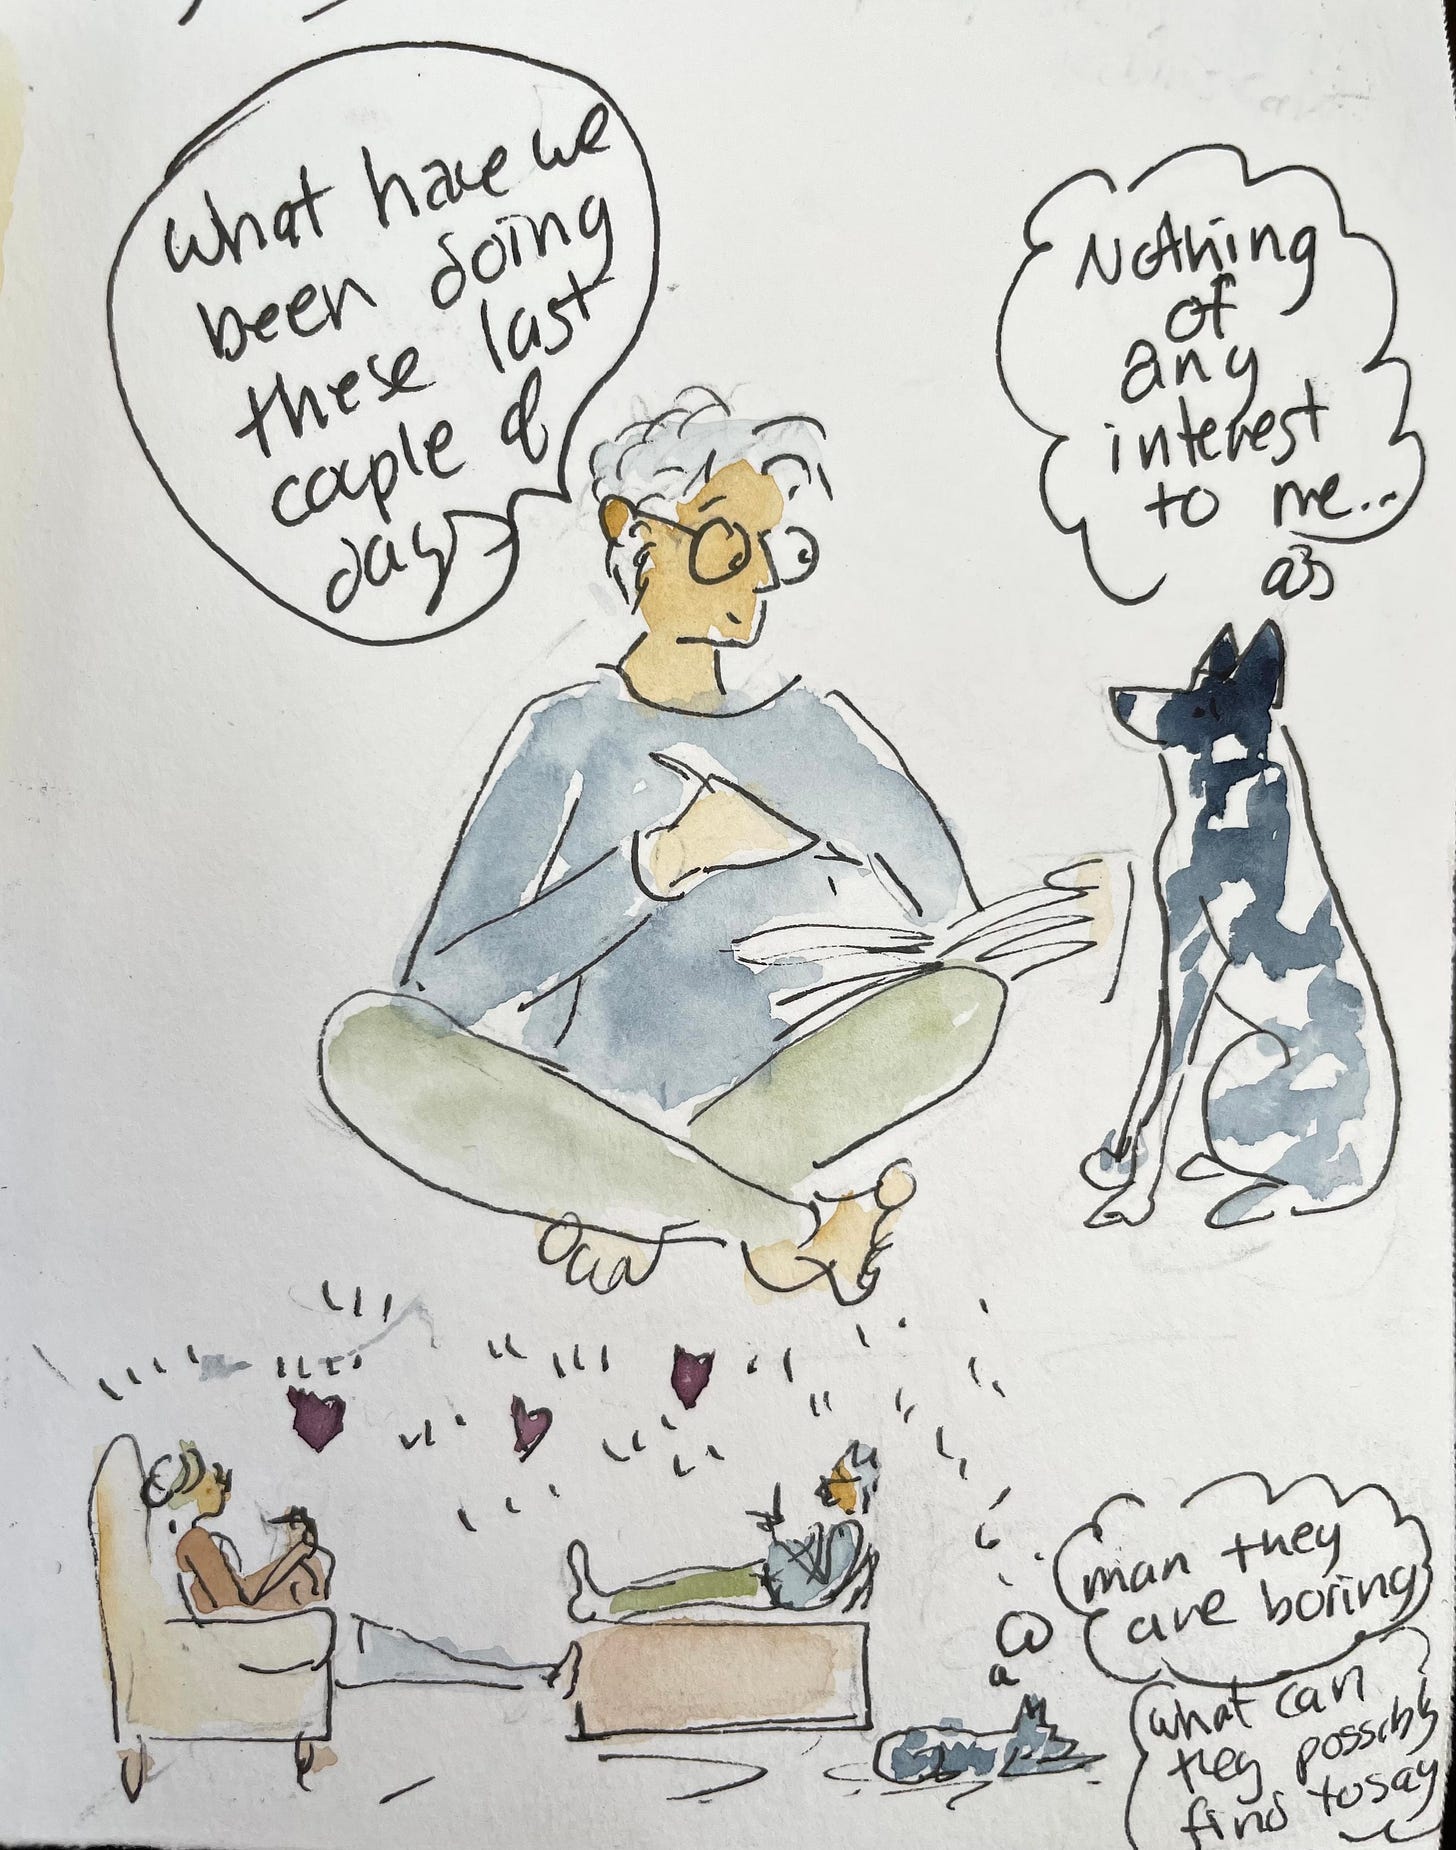 What have we
been doing
these last
couple of
days
Nothing
of
any
interest
to me...
man they
are boring
what can
they possibly
find to say